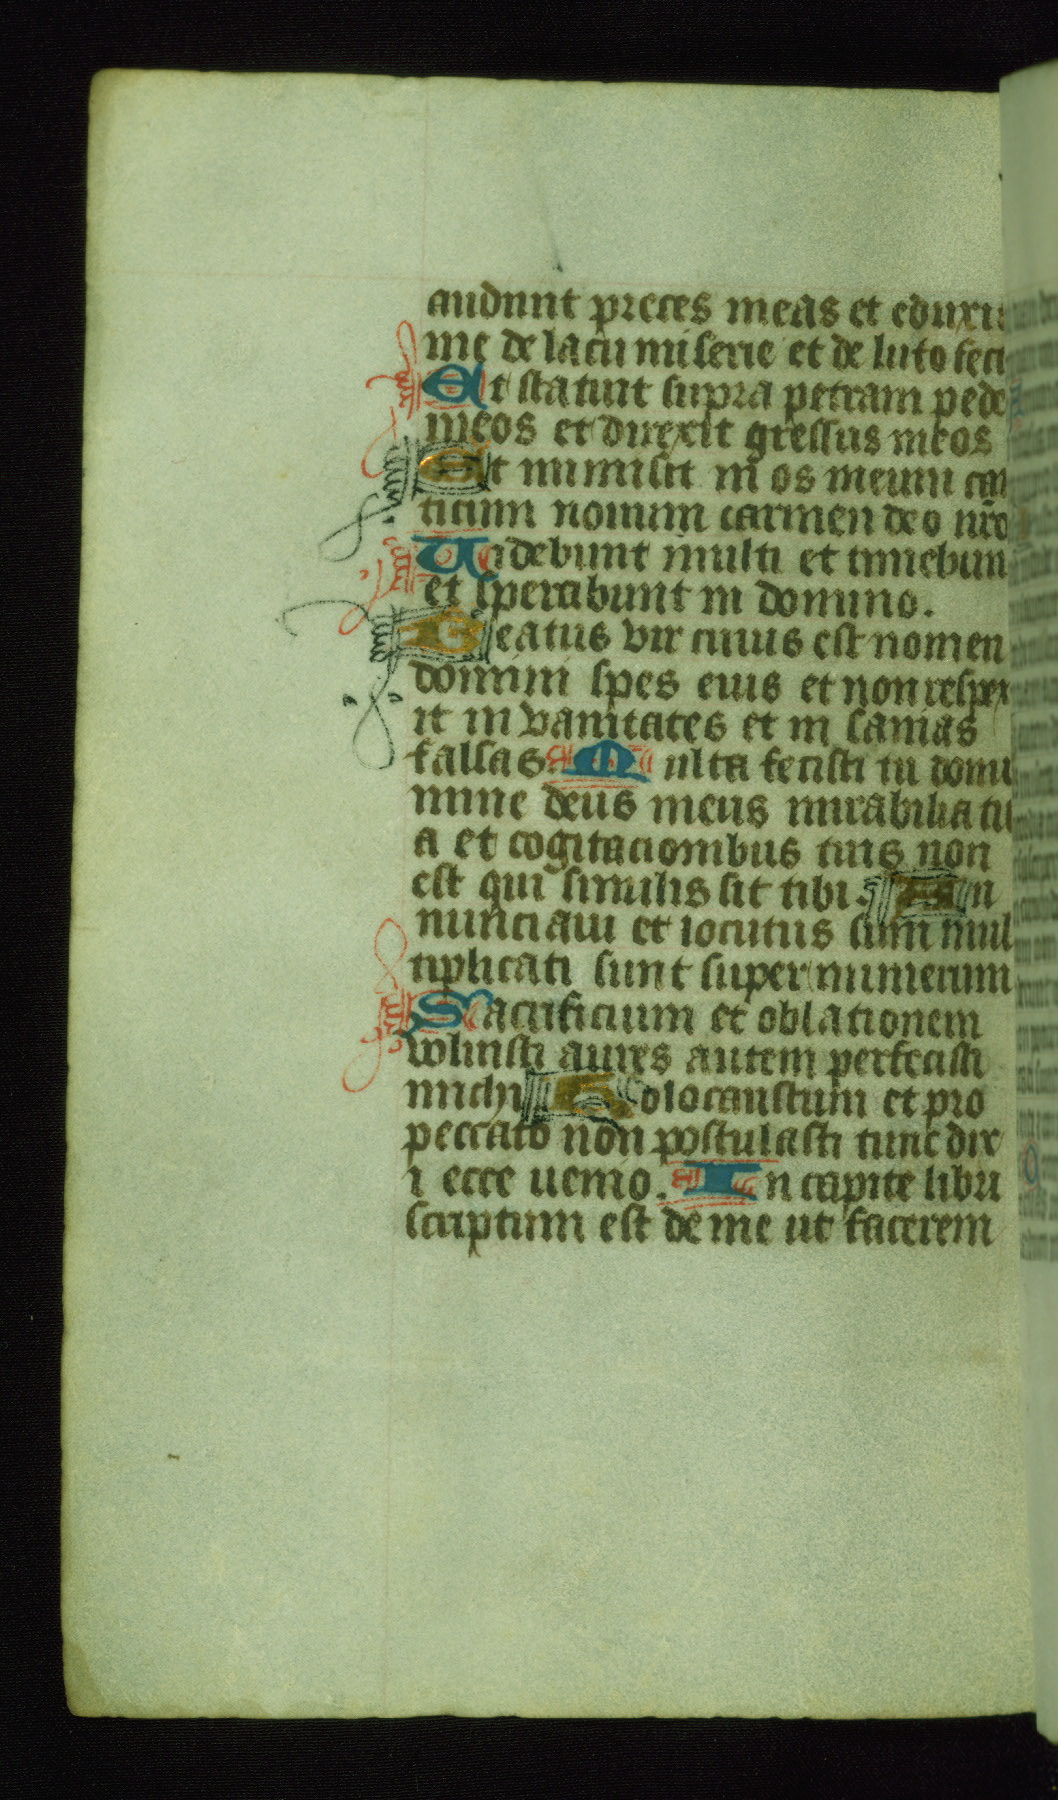 audunt preces meas et eduxit
me de lacu miserie et de luto feci
Et statuit supra petram pede
meos et direxit gressus meos
Et inmisit in os meum can
ticum nouum carmen deo nr̄o
Uidebunt multi et timebun
et sperabunt in domino.
Beatus vir cuius est nomen
domini spes eius et non respex
it in vanitates et in sanias
falsas. Multa fecisti tu domi
mine deus meus mirabilia tu
a et cogitacionibus tuis non
est qui similis sit tibi. An
nunciaui et locutus sum mul
tiplicati sunt super numerum
Sacrificium et oblationem
noluisti aures autem perfecisti
michi Holocaustum et pro
peccato non postulasti tunc dix
i ecce uenio. In capite libri
scriptum est de me ut facerem